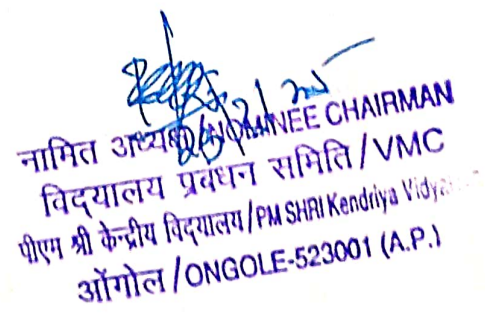 नामित अध्यक्ष/NOMINEE CHAIRMAN
विद्यालय प्रबधन समिति/VMC
पीएम श्री केन्द्रीय विद्यालय/PM SHRI Kendriya
ओंगोल/ONGOLE-523001 (A.P.)